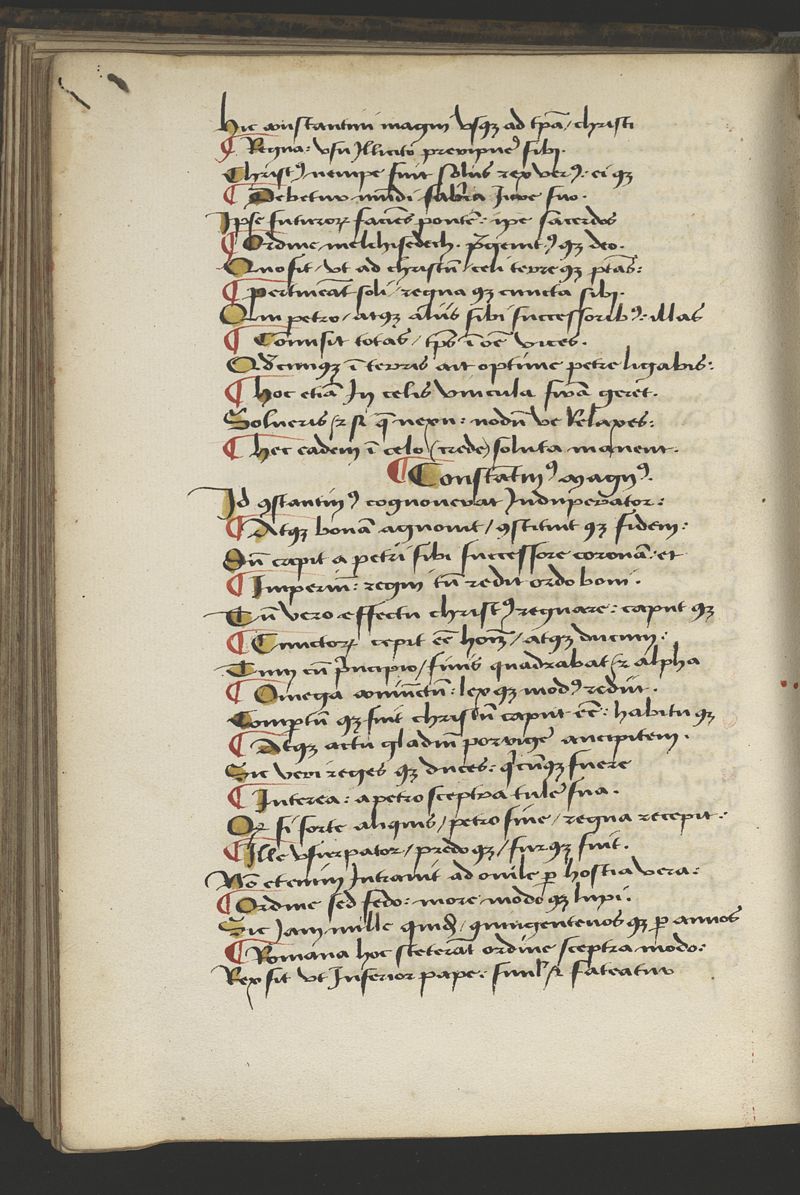 Hic constantini magni vsqꝫ ad tpa / christi
¶ Regna: vsu Illicito preripuere sibi.
Christꝰ nempe fuit solus rex verꝰ: ei qꝫ
¶ Debetur mundi fabrica Jure suo.
Ipse futuroꝝ faciēs pontē: ipe sacerdos
¶ Ordine melchisedech. qꝫ deo.
Quo fit / vt ad christū / celi terre qꝫ ptās:
¶ Pertineāt soli / regna qꝫ cuncta sibi.
Qui petro / atqꝫ aliis sibi successoribꝰ: illas
¶ Comisit totas / tps ī oē vices.
Qdcunqꝫ ī terris ait optime petre ligabis:
¶ Hoc etiā In celis vincula firma geret.
Solueris / ⁊ si quē nexu: nodū ve Relaxes:
¶ Hec eadem ī celo (crede) soluta manent.
¶ Constatinꝰ magnꝰ.
Id ꝯstantinꝰ cognouerat Induperator:
¶ Atqꝫ bonā agnouit / ꝯstituit qꝫ fidem:
Dū capit a petri sibi successore coronā: et
¶ Imperiū: regni tū redit ordo boni.
Tū vero effectu christꝰ regnare: caput qꝫ
¶ Cunctoꝝ cepit eē hoīm / atqꝫ ducum:
Tum cū principio / finis quadrabat / ⁊ alpha
¶ Omega coniunctū: lex qꝫ modꝰ rediit.
Compertū qꝫ fuit christū caput eē: habitu qꝫ
¶ Atqꝫ actu gladiū porrigere ancipitem.
Sic veri reges qꝫ duces: quicūqꝫ fuere
¶ Interea: a petro sceptra tulere sua.
Qꝫ si forte aliquis / petro sine / regna recepit:
¶ Ille vsurpator / predo qꝫ / furqꝫ fuit.
Nō etenim Intrauit ad ouile ꝑ hostia vera:
¶ Ordine sed fedo: more modo qꝫ lupi.
Sic Jam mille quidē / quingentenos qꝫ ꝑ annos
¶ Romana hoc steterāt ordine sceptra modo:
Rex sit vt Inferior pape: simul ⁊ fateatur